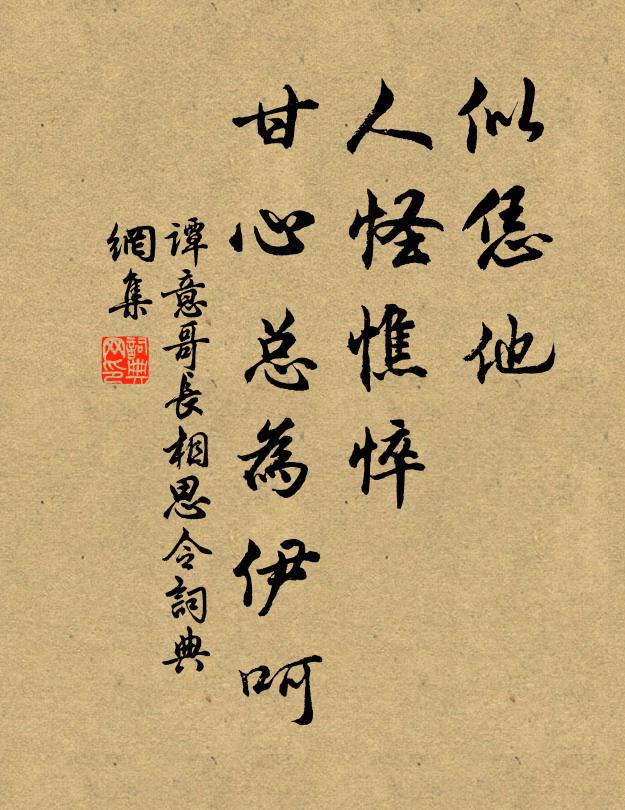 似恁他
人怪憔悴
甘心总為伊呵
谭意哥長相思令詞典
網集
詞典
网印